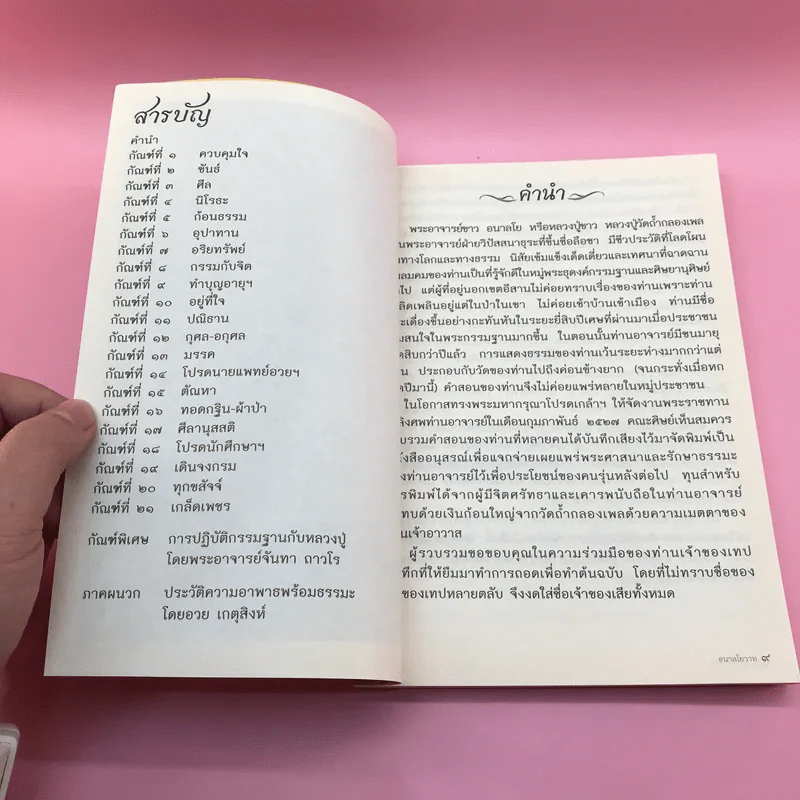 สารบัญ
คำนำ
กัณฑ์ที่ ๑ ควบคุมใจ
กัณฑ์ที่ ๒ ขันธ์
กัณฑ์ที่ ๓ ศีล
กัณฑ์ที่ ๔ นิโรธะ
กัณฑ์ที่ ๕ ก้อนธรรม
กัณฑ์ที่ ๖ อุปาทาน
กัณฑ์ที่ ๗ อริยทรัพย์
กัณฑ์ที่ ๘ กรรมกับจิต
กัณฑ์ที่ ๙ ทำบุญอายุฯ
กัณฑ์ที่ ๑๐ อยู่ที่ใจ
กัณฑ์ที่ ๑๑ ปณิธาน
กัณฑ์ที่ ๑๒ กุศล-อกุศล
กัณฑ์ที่ ๑๓ มรรค
กัณฑ์ที่ ๑๔ โปรดนายแพทย์อวยฯ
กัณฑ์ที่ ๑๕ ตัณหา
กัณฑ์ที่ ๑๖ ทอดกฐิน-ผ้าป่า
กัณฑ์ที่ ๑๗ ศีลานุสสติ
กัณฑ์ที่ ๑๘ โปรดนักศึกษาฯ
กัณฑ์ที่ ๑๙ เดินจงกรม
กัณฑ์ที่ ๒๐ ทุกขสัจจ์
กัณฑ์ที่ ๒๑ เกล็ดเพชร
กัณฑ์พิเศษ การปฏิบัติกรรมฐานกับหลวงปู่
โดยพระอาจารย์จันทา ถาวโร
ภาคผนวก ประวัติความอาพาธพร้อมธรรมะ
โดยอวย เกตุสิงห์
คำนำ
พระอาจารย์ขาว อนาลโย หรือหลวงปู่ขาว หลวงปู่วัดถ้ำกลองเพล
นพระอาจารย์ฝ่ายวิปัสสนาธุระที่ขึ้นชื่อลือชา มีชีวประวัติที่โลดโผน
ทางโลกและทางธรรม นิสัยเข้มแข็งเด็ดเดี่ยวและเทศนาที่ฉาดฉาน
ลมคมของท่านเป็นที่รู้จักดีในหมู่พระธุดงค์กรรมฐานและศิษยานุศิษย์
ไป แต่ผู้ที่อยู่นอกเขตอีสานไม่ค่อยทราบเรื่องของท่านเพราะท่าน
ลิดเพลินอยู่แต่ในป่าในเขา ไม่ค่อยเข้าบ้านเข้าเมือง ท่านมีชื่อ
ะเดื่องขึ้นอย่างกะทันหันในระยะยี่สิบปีเศษที่ผ่านมาเมื่อประชาชน
มสนใจในพระกรรมฐานมากขึ้น ในตอนนั้นท่านอาจารย์มีชนมายุ
ดสิบกว่าปีแล้ว การแสดงธรรมของท่านเว้นระยะห่างมากกว่าแต่
น ประกอบกับวัดของท่านไปถึงค่อนข้างยาก (จนกระทั่งเมื่อหก
ดปีมานี้) คำสอนของท่านจึงไม่ค่อยแพร่หลายในหมู่ประชาชน
ในโอกาสทรงพระมหากรุณาโปรดเกล้าฯ ให้จัดงานพระราชทาน
ลิงศพท่านอาจารย์ในเดือนกุมภาพันธ์ ๒๕๒๗ คณะศิษย์เห็นสมควร
บรวมคำสอนของท่านที่หลายคนได้บันทึกเสียงไว้มาจัดพิมพ์เป็น
ังสืออนุสรณ์เพื่อแจกจ่ายเผยแพร่พระศาสนาและรักษาธรรมะ
งท่านอาจารย์ไว้เพื่อประโยชน์ของคนรุ่นหลังต่อไป ทุนสำหรับ
รพิมพ์ได้จากผู้มีจิตศรัทธาและเคารพนับถือในท่านอาจารย์
ทบด้วยเงินก้อนใหญ่จากวัดถ้ำกลองเพลด้วยความเมตตาของ
นเจ้าอาวาส
ผู้รวบรวมขอขอบคุณในความร่วมมือของท่านเจ้าของเทป
ทึกที่ให้ยืมมาทำการถอดเพื่อทำต้นฉบับ โดยที่ไม่ทราบชื่อของ
ของเทปหลายตลับ จึงงดใส่ชื่อเจ้าของเสียทั้งหมด
อนาลโยวาท ๙